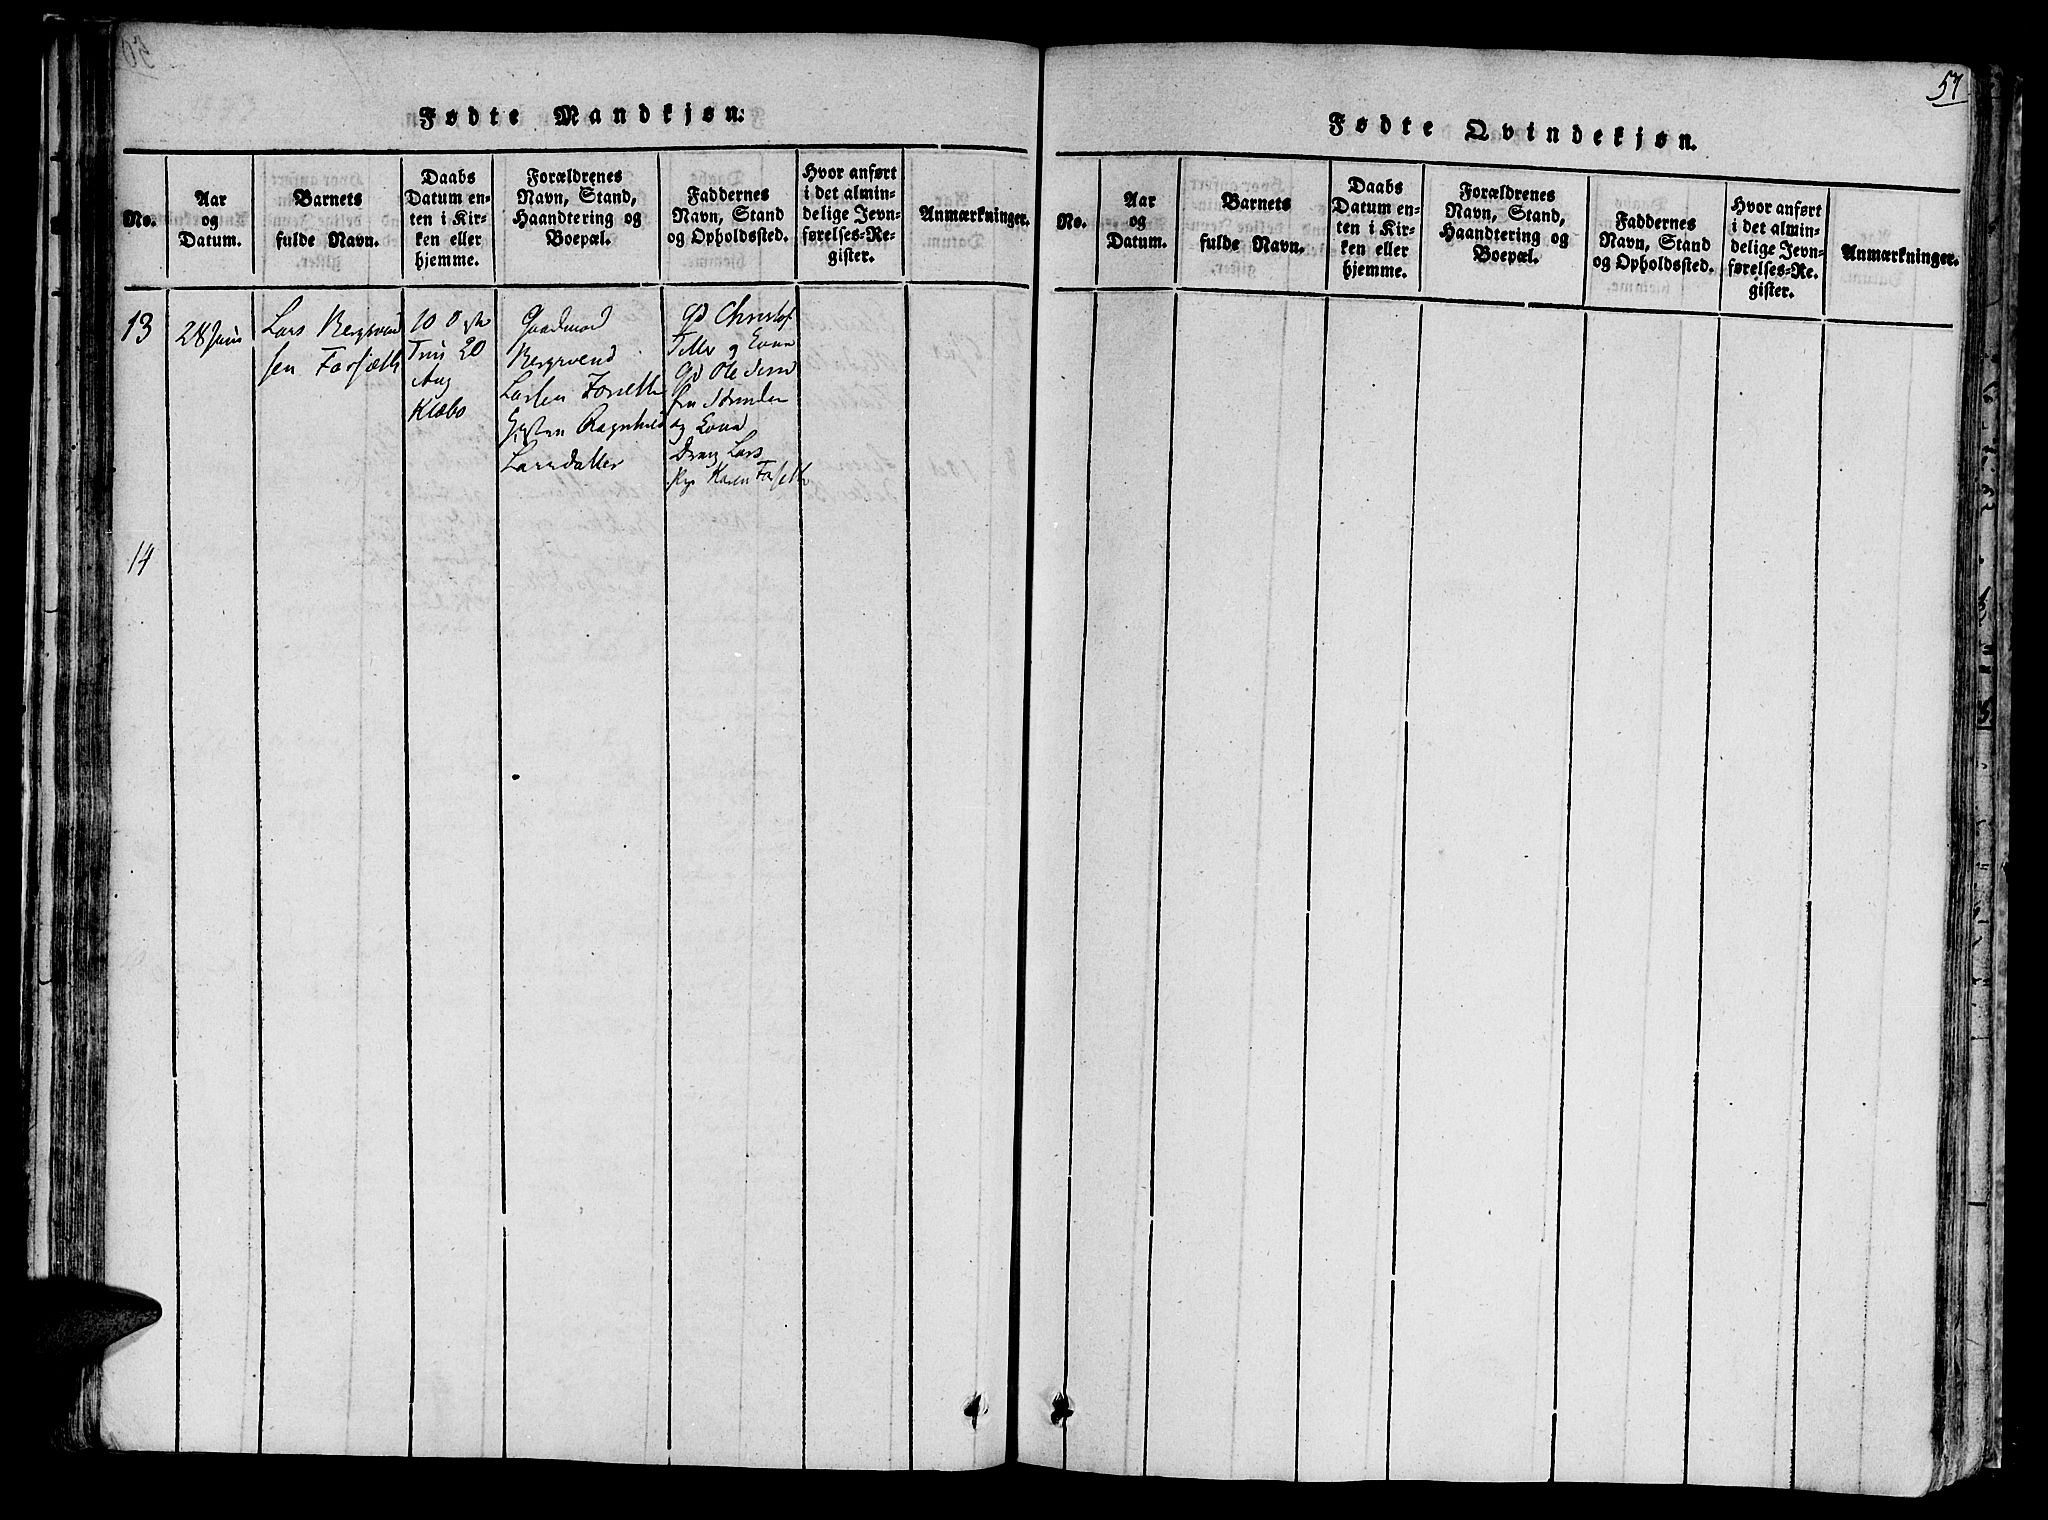 57
Fødte Mandkjøn.
No.
Aar
og
Datum.
Barnets
fulde Navn.
Daabs
Datum en-
ten i Kir-
ken eller
hjemme.
Forældrenes
Navn, Stand,
Haandtering og
Boepæl.
Faddernes
Navn, Stand
og Opholdssted.
Hvor anført
i det almin-
delige Jevn-
førelses-Re-
gister.
Anmærkninger.
13
28 Juni
Lars Bergsvend
sen Forsæth
10 S
Trin 20
Aug
Klæbo
Gaardmand
Bergsvend
Larsen Forseth
Ragnhild
Larsdatter
Gd Christof
Teller og Kone
Gd Ole
og Kone
Dreng Lars
Pige Karen Forseth
14
Fødte Qvindekjøn.
No.
Aar
og
Datum.
Barnets
fulde Navn.
Daabs
Datum en-
ten i Kir-
ken eller
hjemme.
Forældrenes
Navn, Stand,
Haandtering og
Boepæl.
Faddernes
Navn, Stand
og Opholdssted.
Hvor anført
i det almin-
delige Jevn-
førelses-Re-
gister.
Anmærkninger.